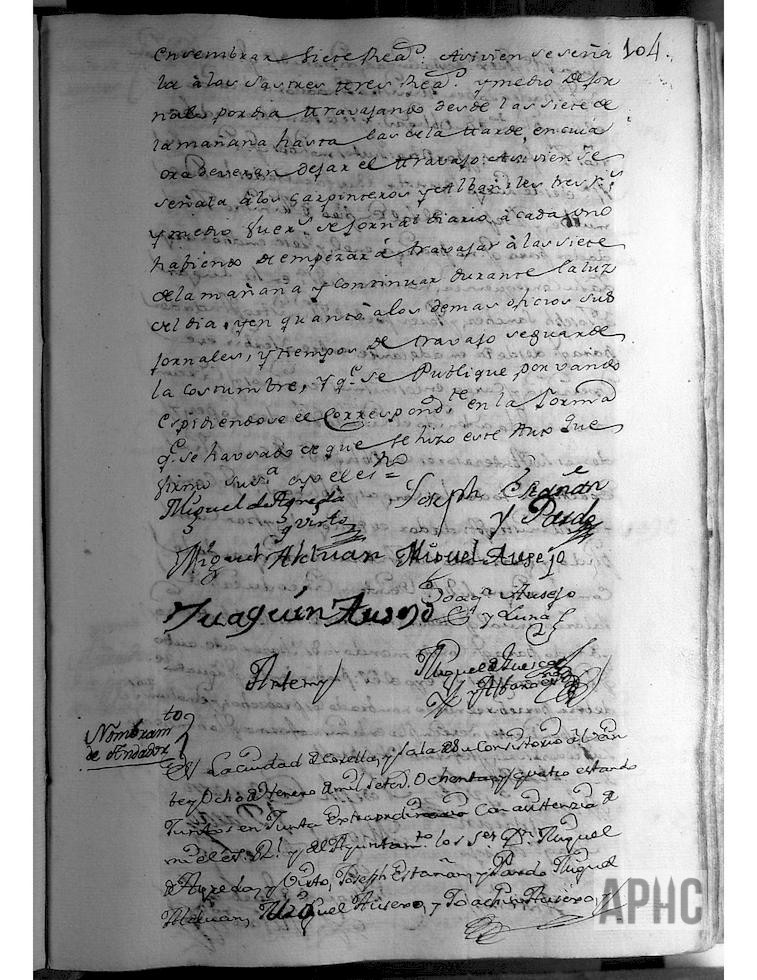 104.
en sembrar siete Rea.s Asivien se seña
la à los Sastres tres Rea.s y medio de jor
nales por dia travajando desde las siete de
la mañana hasta las de la tarde, en cuia
ora deveran dejar el travajo; Asivien se
señala à los Carpinteros y Albañiles tres r.s
y medio fuer.s de jornal diario à cada uno
haviendo de empezar à travajar à las siete
de la mañana y continuar durante la luz
del dia, y en quanto à los demas oficios sus
jornales, y tiempos de travajo se guarde
la costumbre, y q.e se Publique por vando
espidiendose el Correspond.te en la forma
q.e se ha usado de que se hizo este Auto que
firmó
Miguel de Agreda
y Virto
Joseph Estañan
y Pardo
Miguel Alduan Miguel Ausejo
Juaquin Ausejo
Joaq.n Ausejo
y Luna
Antemi
Miguel de Huesca
Nombram.to
de Andador
En La ciudad de Corella, y Sala de su Consistorio à Vein
te y Ocho de Henero de mil Setec.s Ochenta, y quatro estando
Juntos en Junta Extraordinaria Con asistenzia de
mi el es.no R.l y del Ayuntam.to los Ser.s D.n Miguel
de Agreda, y Virto, Joseph Estañan, y Pardo Miguel
Alduan, Miguel Ausejo, y Joachin Ausejo, y
APHC